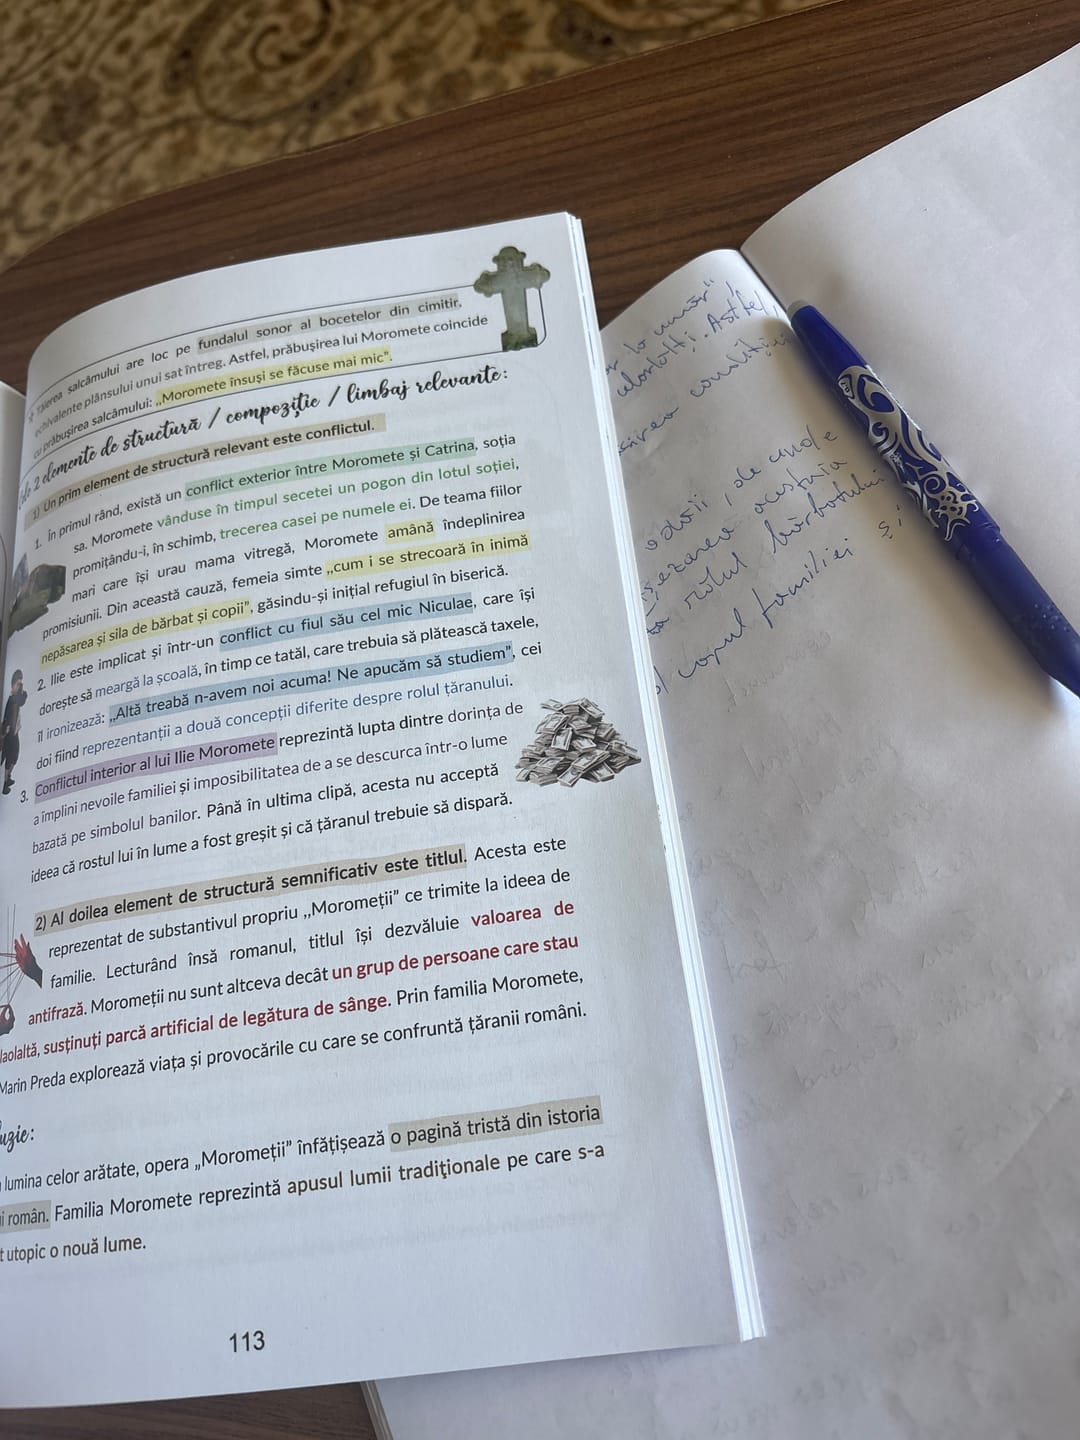 Tăierea salcâmului are loc pe fundalul sonor al bocetelor din cimitir,
echivalente plânsului unui sat întreg. Astfel, prăbușirea lui Moromete coincide
cu prăbușirea salcâmului: „Moromete însuși se făcuse mai mic".
2 elemente de structură / compoziție / limbaj relevante:
1) Un prim element de structură relevant este conflictul.
1. În primul rând, există un conflict exterior între Moromete și Catrina, soția
sa. Moromete vânduse în timpul secetei un pogon din lotul soției,
promițându-i, în schimb, trecerea casei pe numele ei. De teama fiilor
mari care își urau mama vitregă, Moromete amână îndeplinirea
promisiunii. Din această cauză, femeia simte „cum i se strecoară în inimă
nepăsarea și sila de bărbat și copii", găsindu-și inițial refugiul în biserică.
2. Ilie este implicat și într-un conflict cu fiul său cel mic Niculae, care își
dorește să meargă la școală, în timp ce tatăl, care trebuia să plătească taxele,
îl ironizează: „Altă treabă n-avem noi acuma! Ne apucăm să studiem", cei
doi fiind reprezentanții a două concepții diferite despre rolul țăranului.
3. Conflictul interior al lui Ilie Moromete reprezintă lupta dintre dorința de
a împlini nevoile familiei și imposibilitatea de a se descurca într-o lume
bazată pe simbolul banilor. Până în ultima clipă, acesta nu acceptă
ideea că rostul lui în lume a fost greșit și că țăranul trebuie să dispară.
2) Al doilea element de structură semnificativ este titlul. Acesta este
reprezentat de substantivul propriu „Moromeții" ce trimite la ideea de
familie. Lecturând însă romanul, titlul își dezvăluie valoarea de
antifrază. Moromeții nu sunt altceva decât un grup de persoane care stau
laolaltă, susținuți parcă artificial de legătura de sânge. Prin familia Moromete,
Marin Preda explorează viața și provocările cu care se confruntă țăranii români.
lumina celor arătate, opera „Moromeții" înfățișează o pagină tristă din istoria
român. Familia Moromete reprezintă apusul lumii tradiționale pe care s-a
utopic o nouă lume.
113
Astfel
de unde
acestuia
rolul bărbatului
familiei și